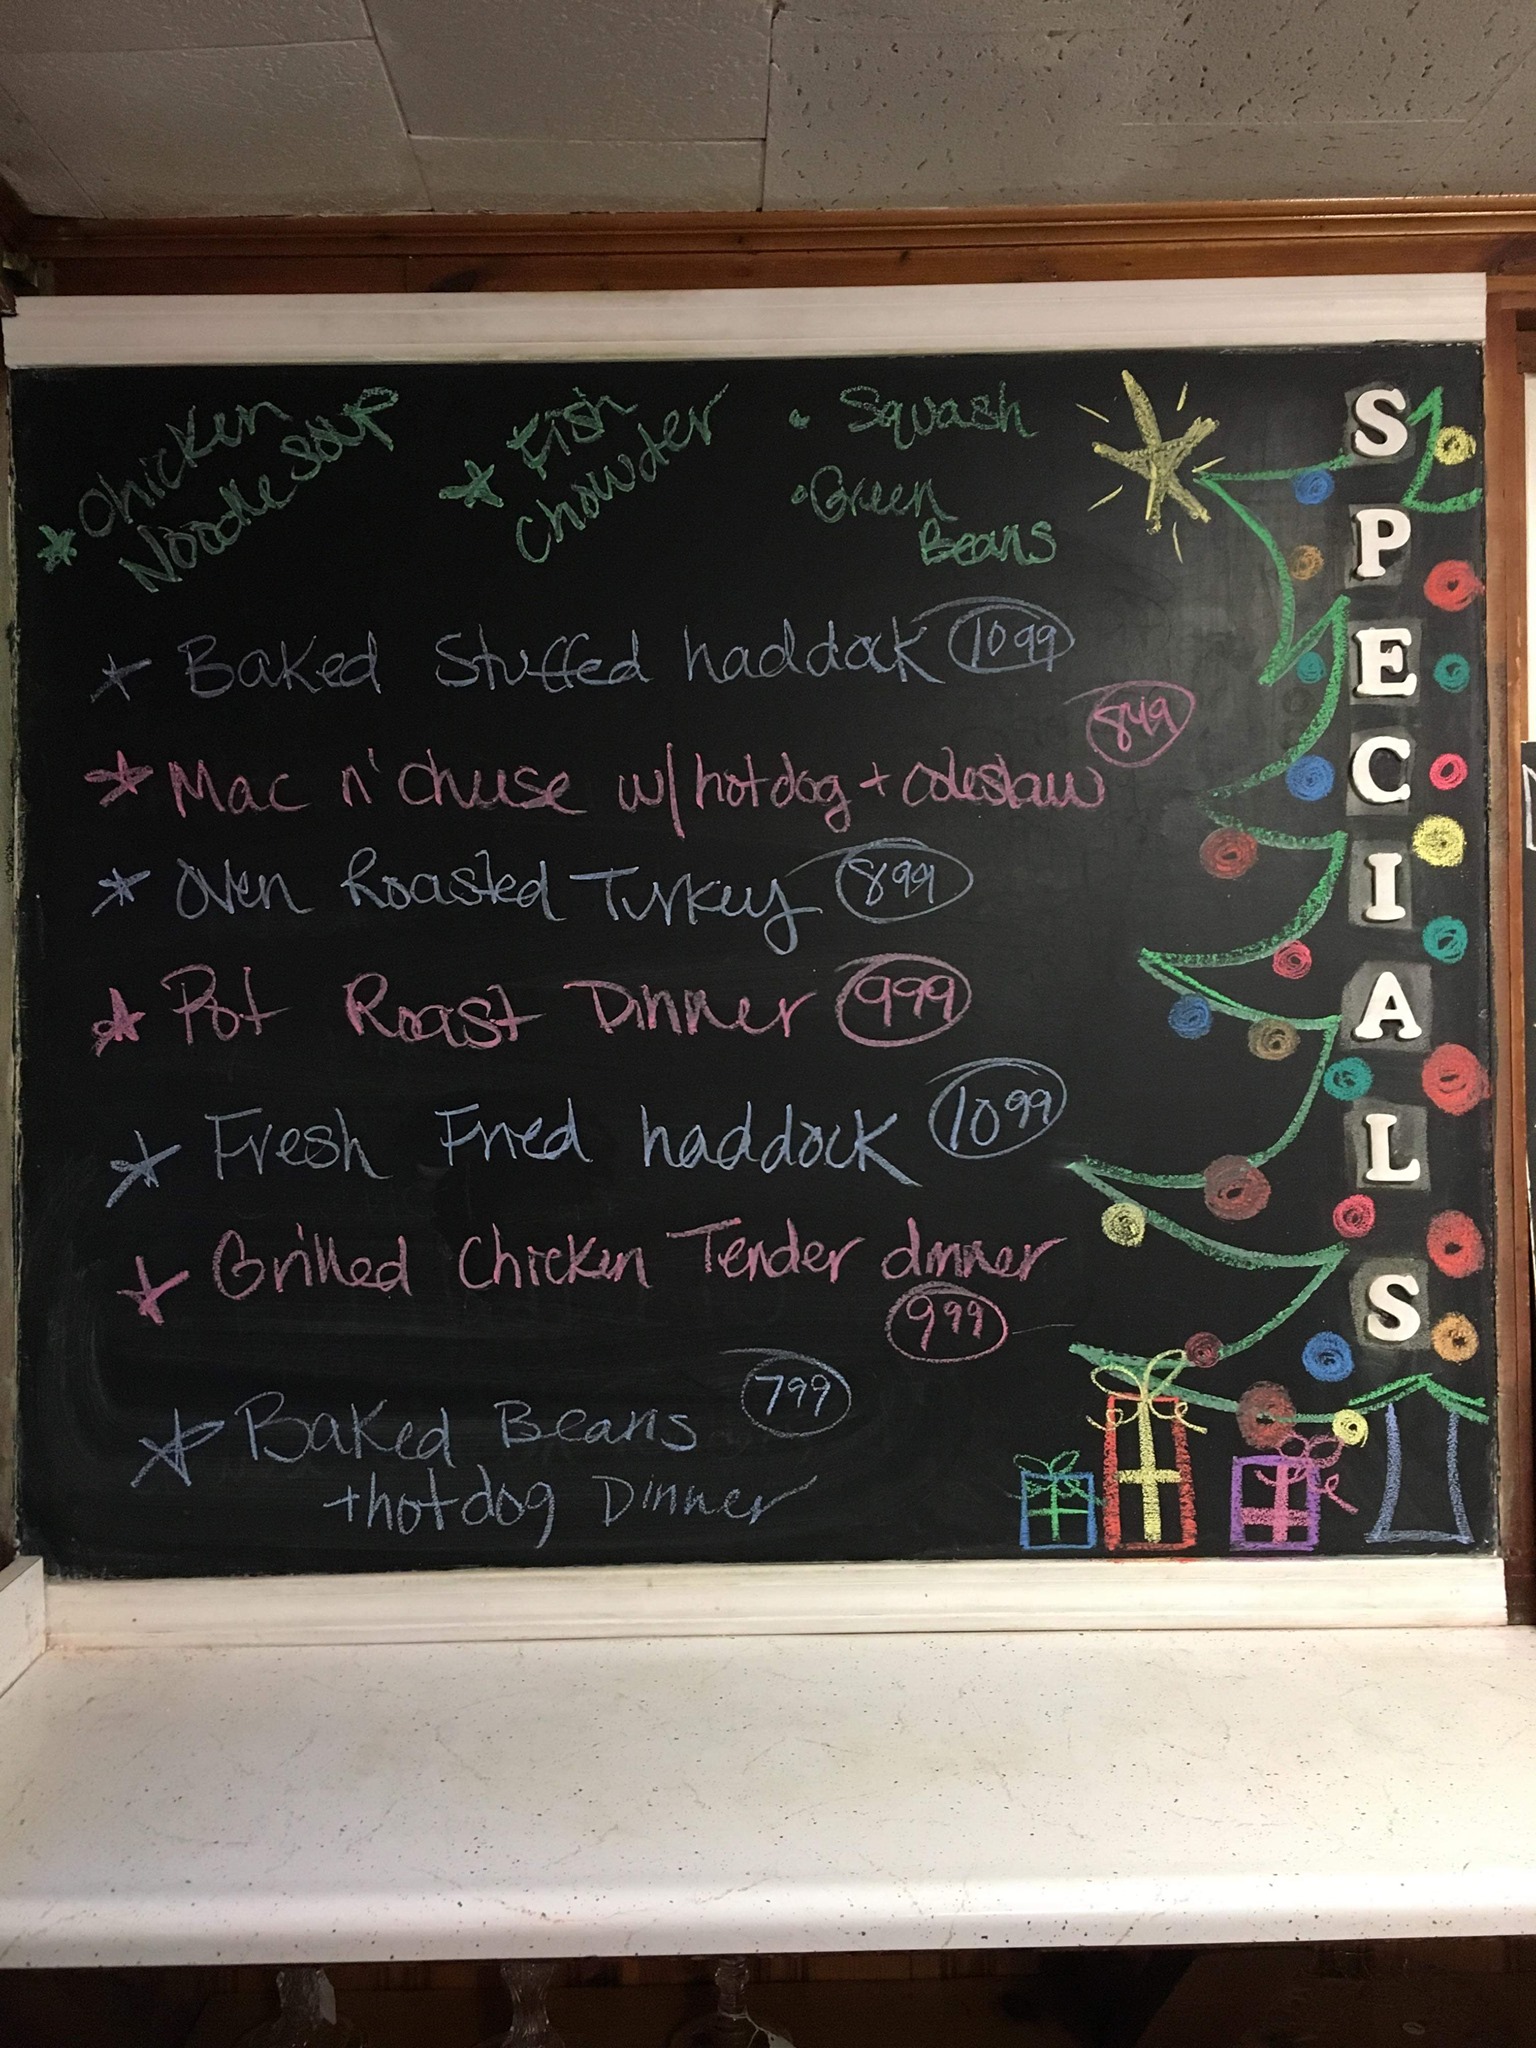 Chicken
Noodle Soup
Fish
Chowder
Squash
Green
Beans
SPECIALS
Baked Stuffed haddock 10 99
Mac n' cheese w/ hotdog + coleslaw 8 49
Oven Roasted Turkey 8 99
Pot Roast Dinner 9 99
Fresh Fried haddock 10 99
Grilled Chicken Tender dinner
9 99
Baked Beans 7 99
+ hotdog Dinner